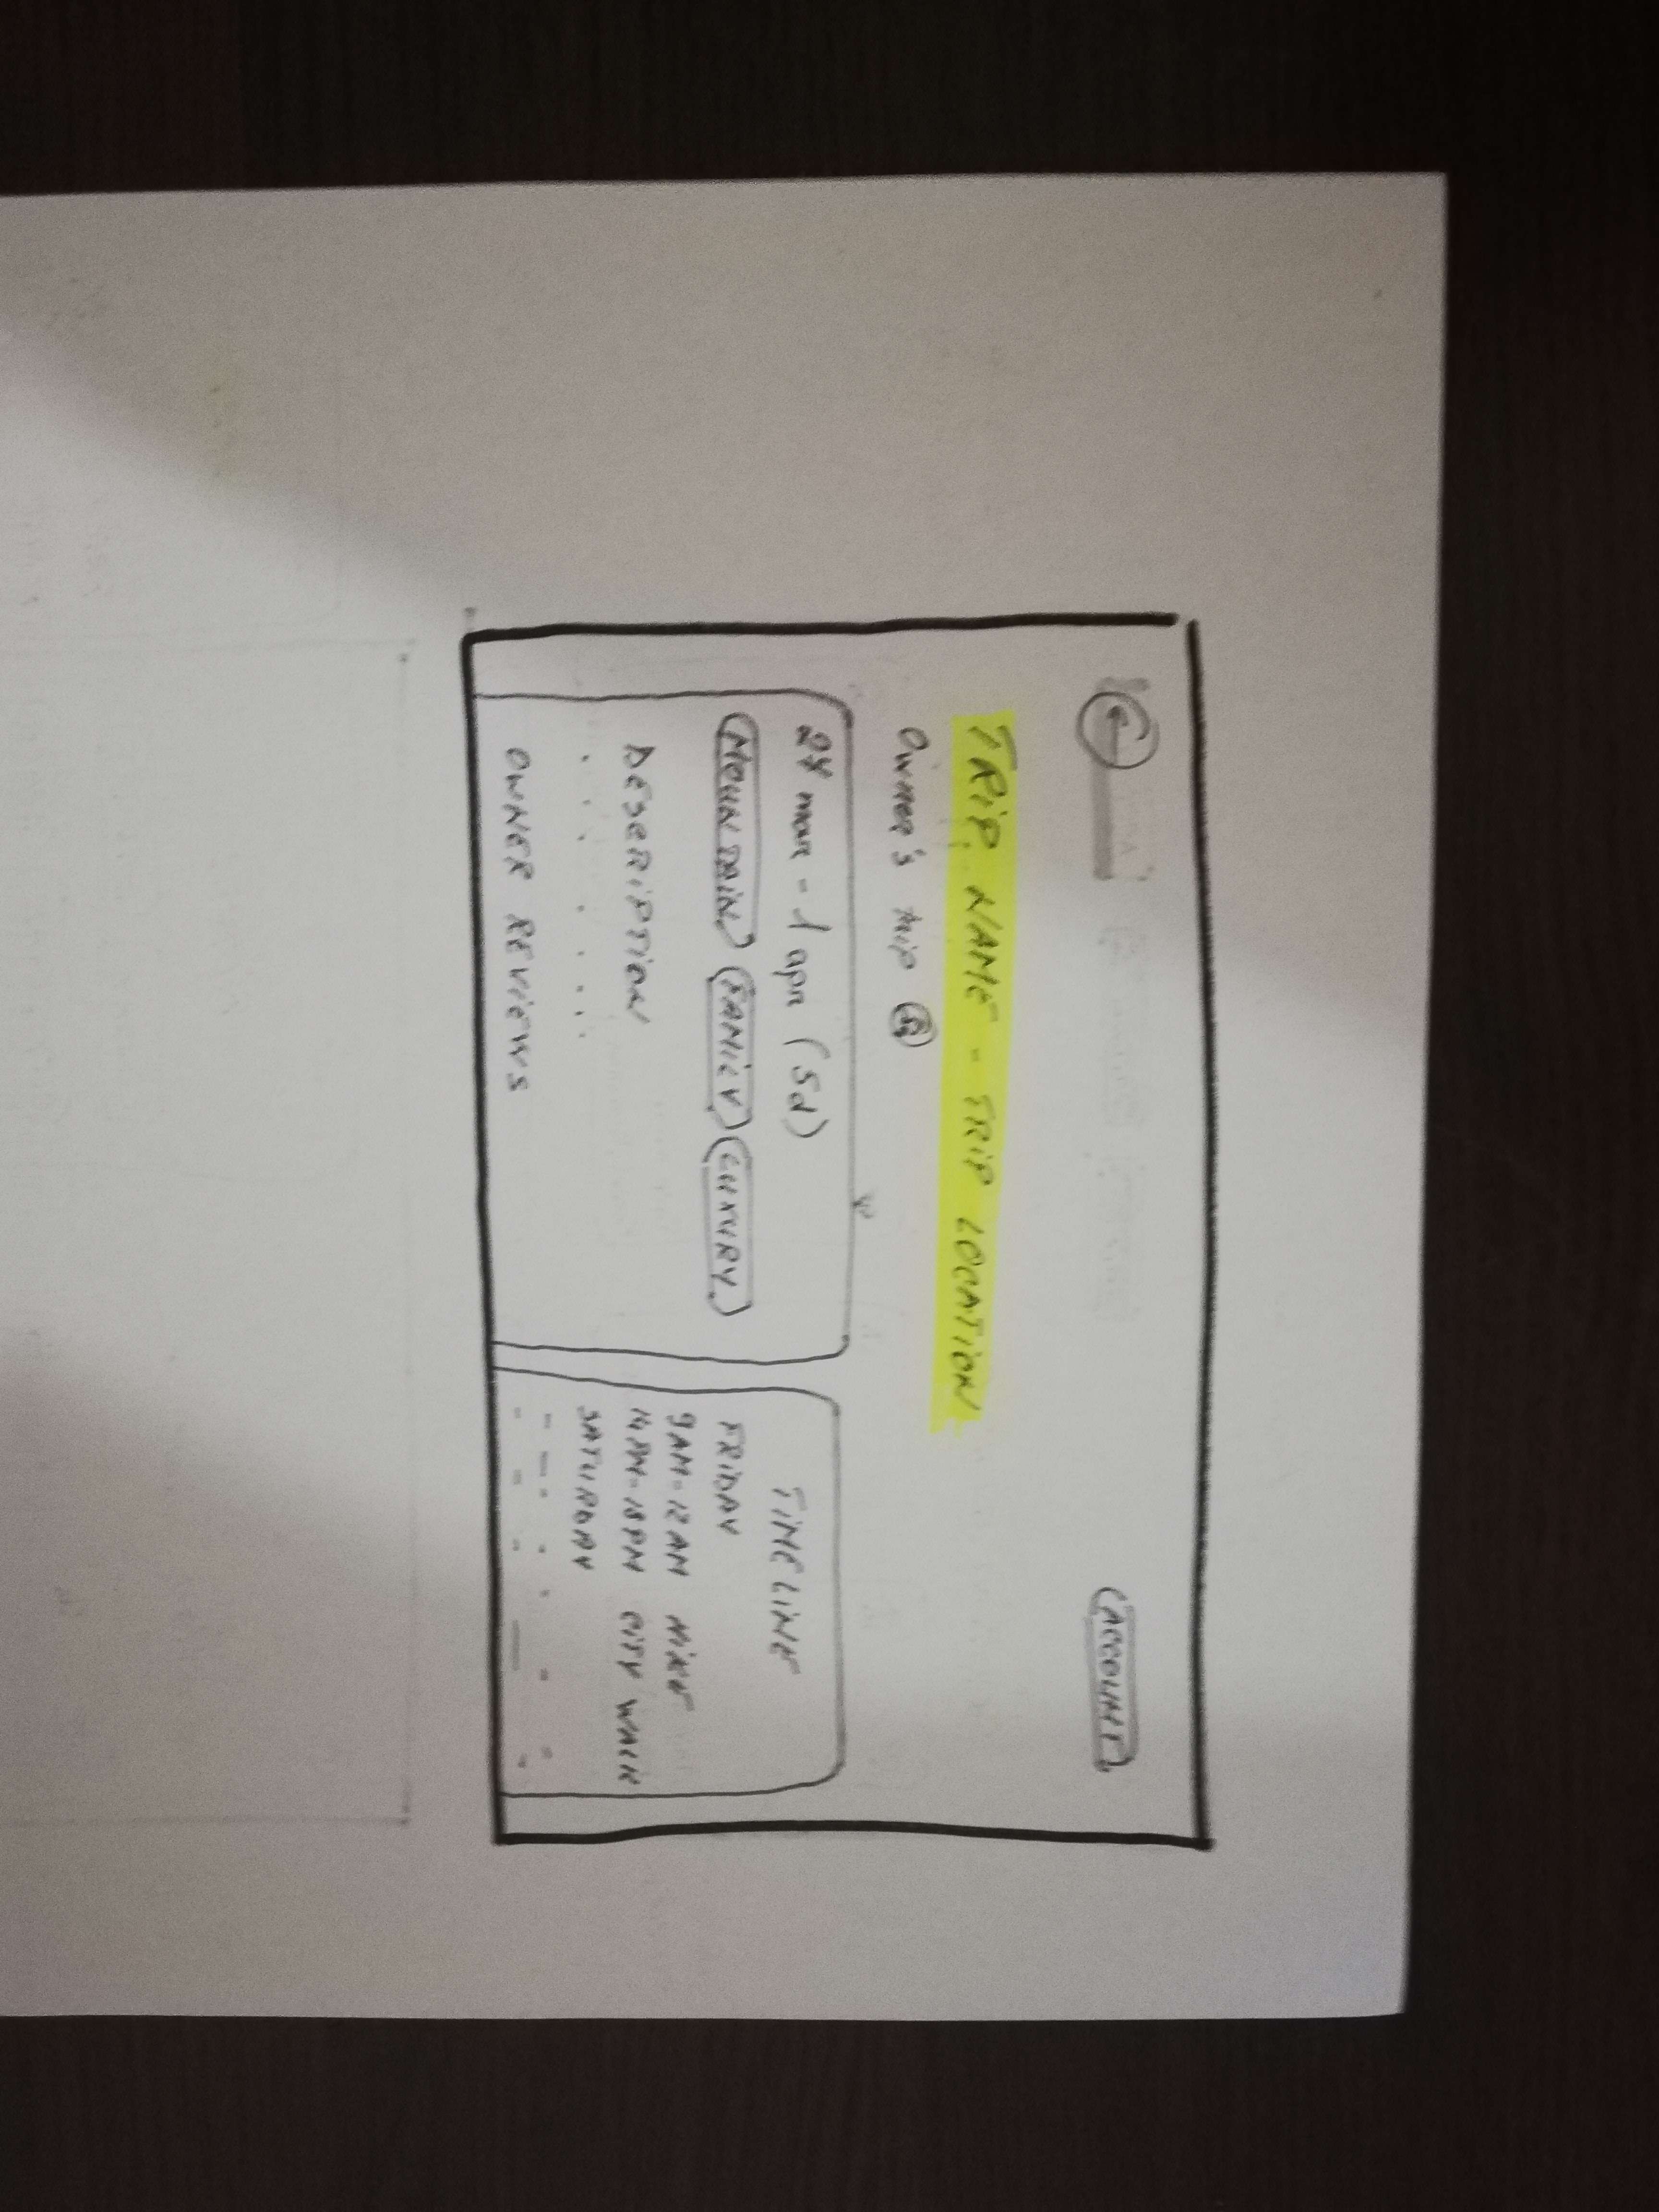 ACCOUNT
TRIP NAME - TRIP LOCATION
Owner's trip
24 mar - 1 apr (5d)
MOUNTAIN FAMILY LUXURY
DESCRIPTION
OWNER REVIEWS
TIMELINE
FRIDAY
9AM-12AM HIKE
14PM-18PM CITY WALK
SATURDAY